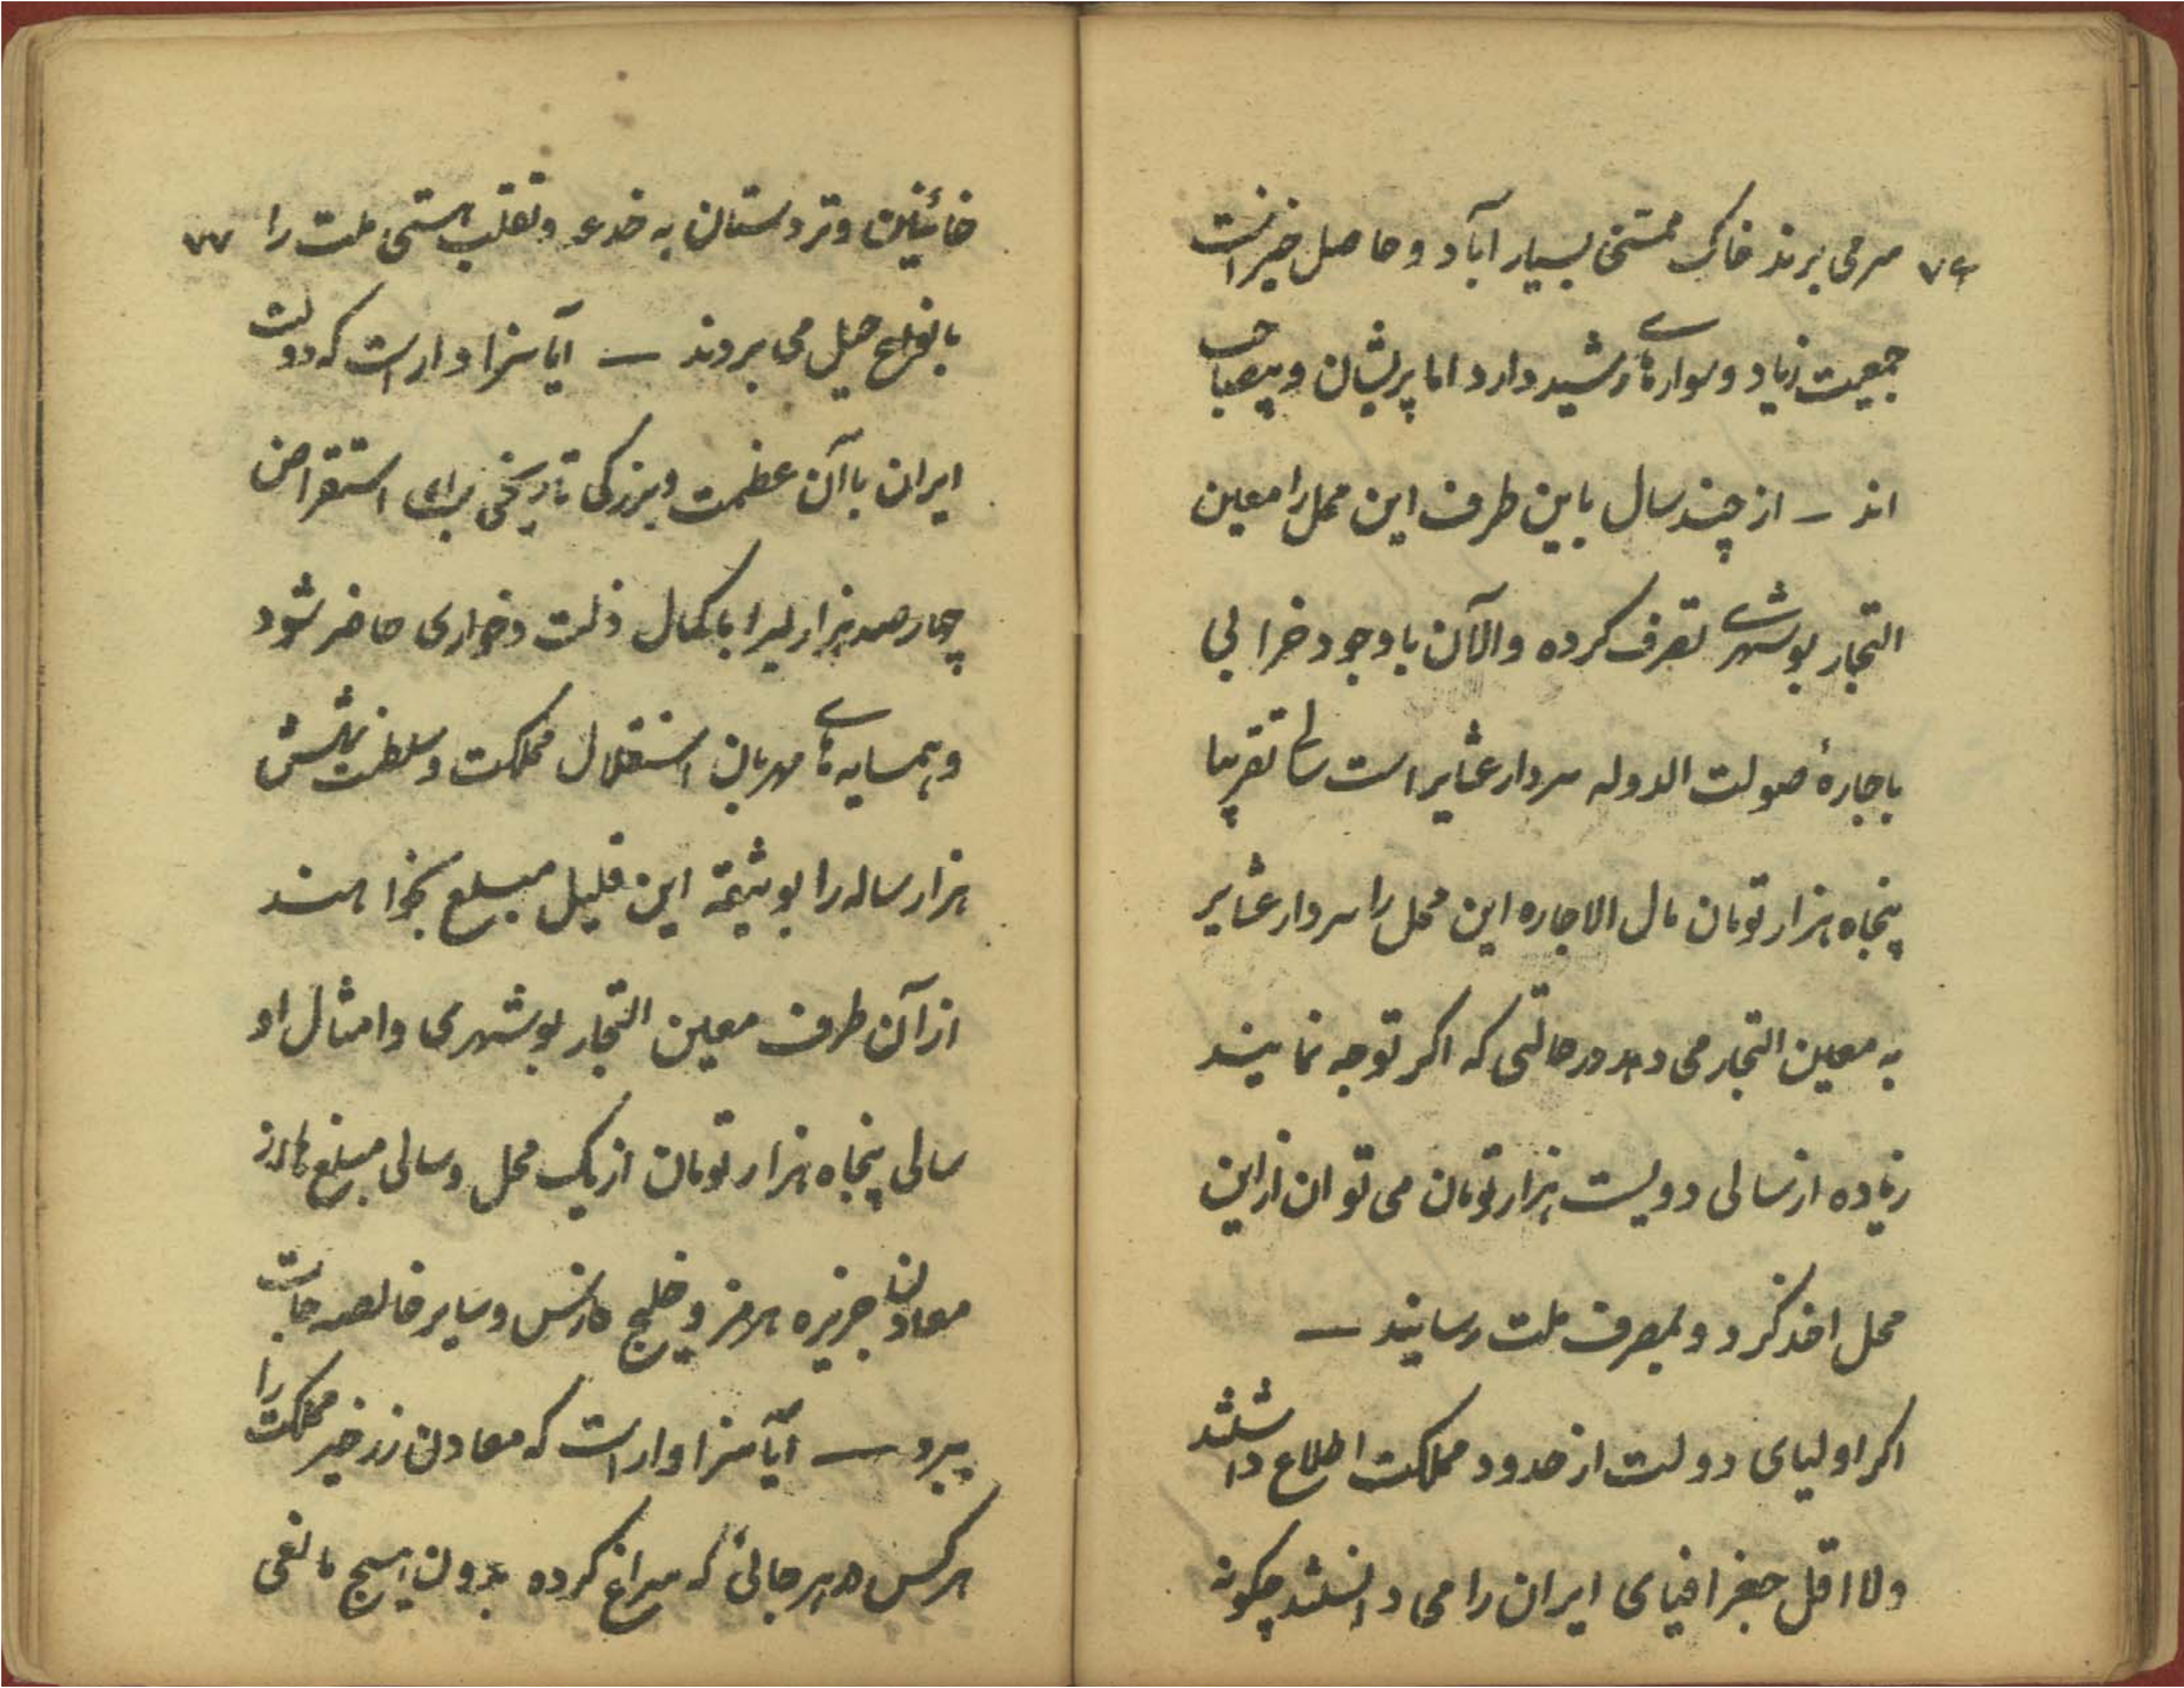 ۷۶ سر می برند خاک ممسنی بسیار آباد و حاصل خیز است
جمعیت زیاد و سواره های رشید دارد اما پریشان و بیصاحب
اند – از چند سال باین طرف این محل را معین
التجار بوشهری تصرف کرده و الآن با وجود خرابی
باجارهٔ صولت الدوله سردار عشایر است سالی تقریبا
پنجاه هزار تومان مال الاجاره این محل را سردار عشایر
به معین التجار می دهد در حالتی که اکر توجه نمایند
زیاده از سالی دویست هزار تومان می توان از این
محل اخذ کرد و بمصرف ملت رسانید —
اکر اولیای دولت از حدود مملکت اطلاع داشتند
ولا اقل جغرافیای ایران را می دانستند چکونه
خائنین و تردستان به خدعه و تقلب هستی ملت را ۷۷
بانواع حیل می بردند — آیا سزاوار است که دولت
ایران با آن عظمت و بزرکی تاریخی برای استقراض
چهار صد هزار لیرا با کمال ذلت و خواری حاضر شود
و همسایه های مهربان استقلال مملکت و سلطنت شش
هزار ساله را بوثیقهٔ این قلیل مبلغ بخواهند
از آن طرف معین التجار بوشهری و امثال او
سالی پنجاه هزار تومان از یک محل و سالی مبلغ ها از
معادن جزیره هرمز و خلیج فارس و سایر خالصه جات
ببرد — آیا سزاوار است که معادن زرخیز مملکت را
هر کس در هر جائی که سراغ کرده بدون هیچ مانعی